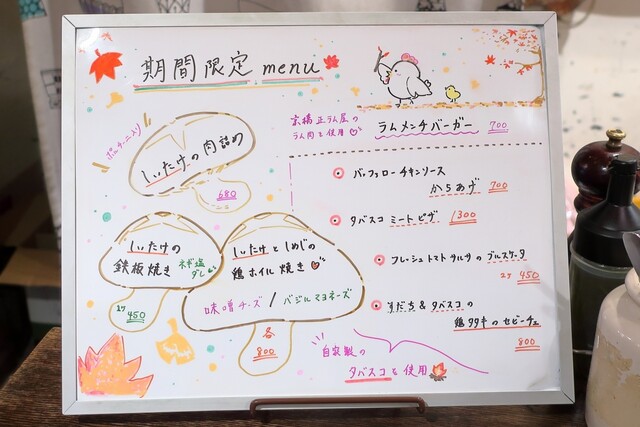 期間限定 menu
ポルチーニ入り
しいたけの肉詰め
680
しいたけの
鉄板焼き
ネギ塩
ダレ
2ケ 450
しいたけとしめじの
鶏ホイル焼き
味噌チーズ / バジルマヨネーズ
各
800
ラム肉を使用
ラムメンチバーガー 700
バッファローチキンソース
からあげ 700
タバスコ ミートピザ 1300
フレッシュトマトサルサの ブルスケッタ
2ケ 450
すだち & タバスコの
鶏タタキのセビーチェ
800
自家製の
タバスコを使用